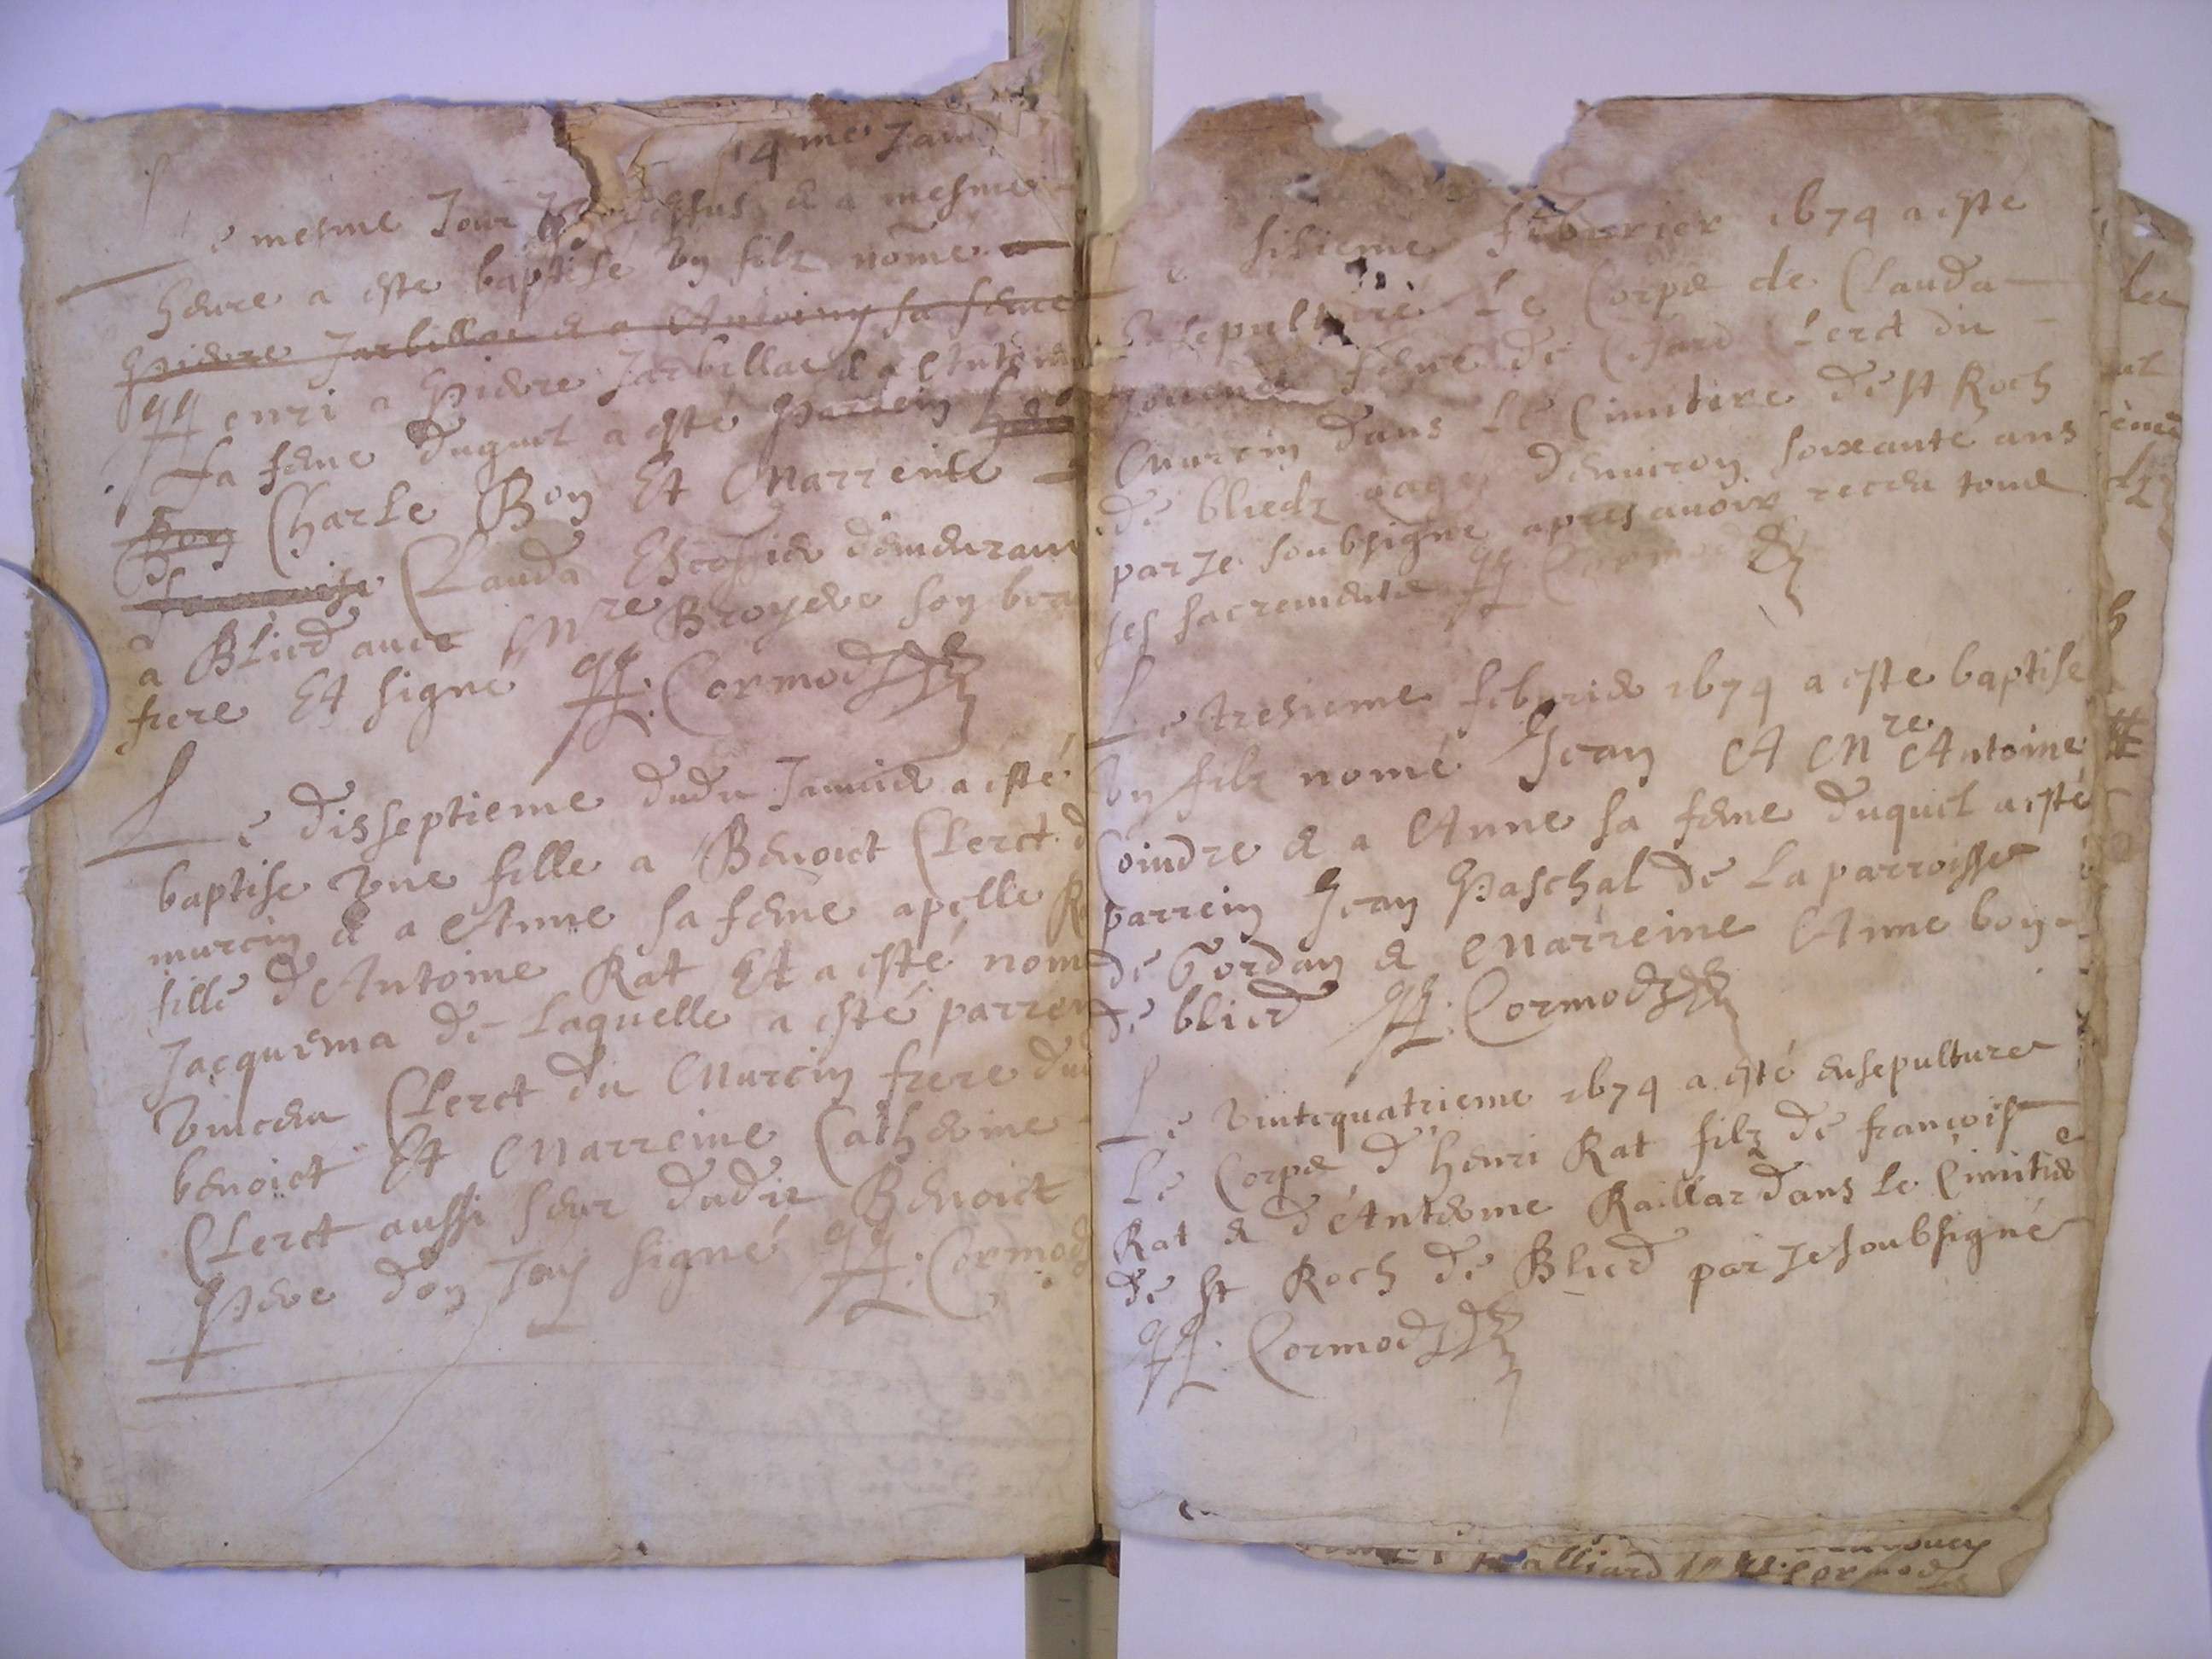 14me Janv
Le mesme Jour dessus & a mesme
heure a este baptisé un filz nomé a
Pierre Jarbillac & a Antoiny sa feme
Henri a Pierre Jarbillac & a Anto
sa feme duquel a esté Parrein
Bon Charle Bon Et Marreine
francoise Clauda Escossier demeurant
a Blied avec Mre Broyere son beau
frere Et signé H: Cormod
Le disseptieme dudu Janvier a esté
baptise une fille a Benoict Clerct d
murcin & a Anne sa feme apelle R
fille d'Antoine Rat Et a esté nom
Jacquema de Laquelle a esté parrein
vincen Clerct du Murcin frere dud
benoict Et Marreine Catherine
Clerct aussi seur dudit Benoict
Pere don Jay signé H: Cormod
Le sisieme febvrier 1674 a esté
Ensepulturé Le Corps de Clauda
Jouvenet feme de Clerct du
Murcin dans Le Cimitere de St Roch
de bliedz aage denviron soixante ans
par Je soubsigne apres avoir receu tous
ses sacrements H Cormod
Le tresieme febvrier 1674 a este baptise
un filz nomé Jean A Mre Antoine
Coindre & a Anne sa feme duquel a esté
parrein Jean Paschal de La parroisse
de Gordan & Marreine Anne bon
de blied H: Cormod
Le vintequatrieme 1674 a esté ensepulture
Le Corps d'henri Rat filz de françois
Rat & d'Anteome Raillar dans Le Cimitiere
de St Roch de Blied par Je soubsigné
H: Cormod